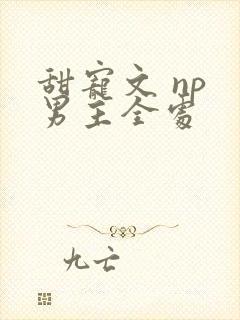 甜寵文 np
男主全處
九亡